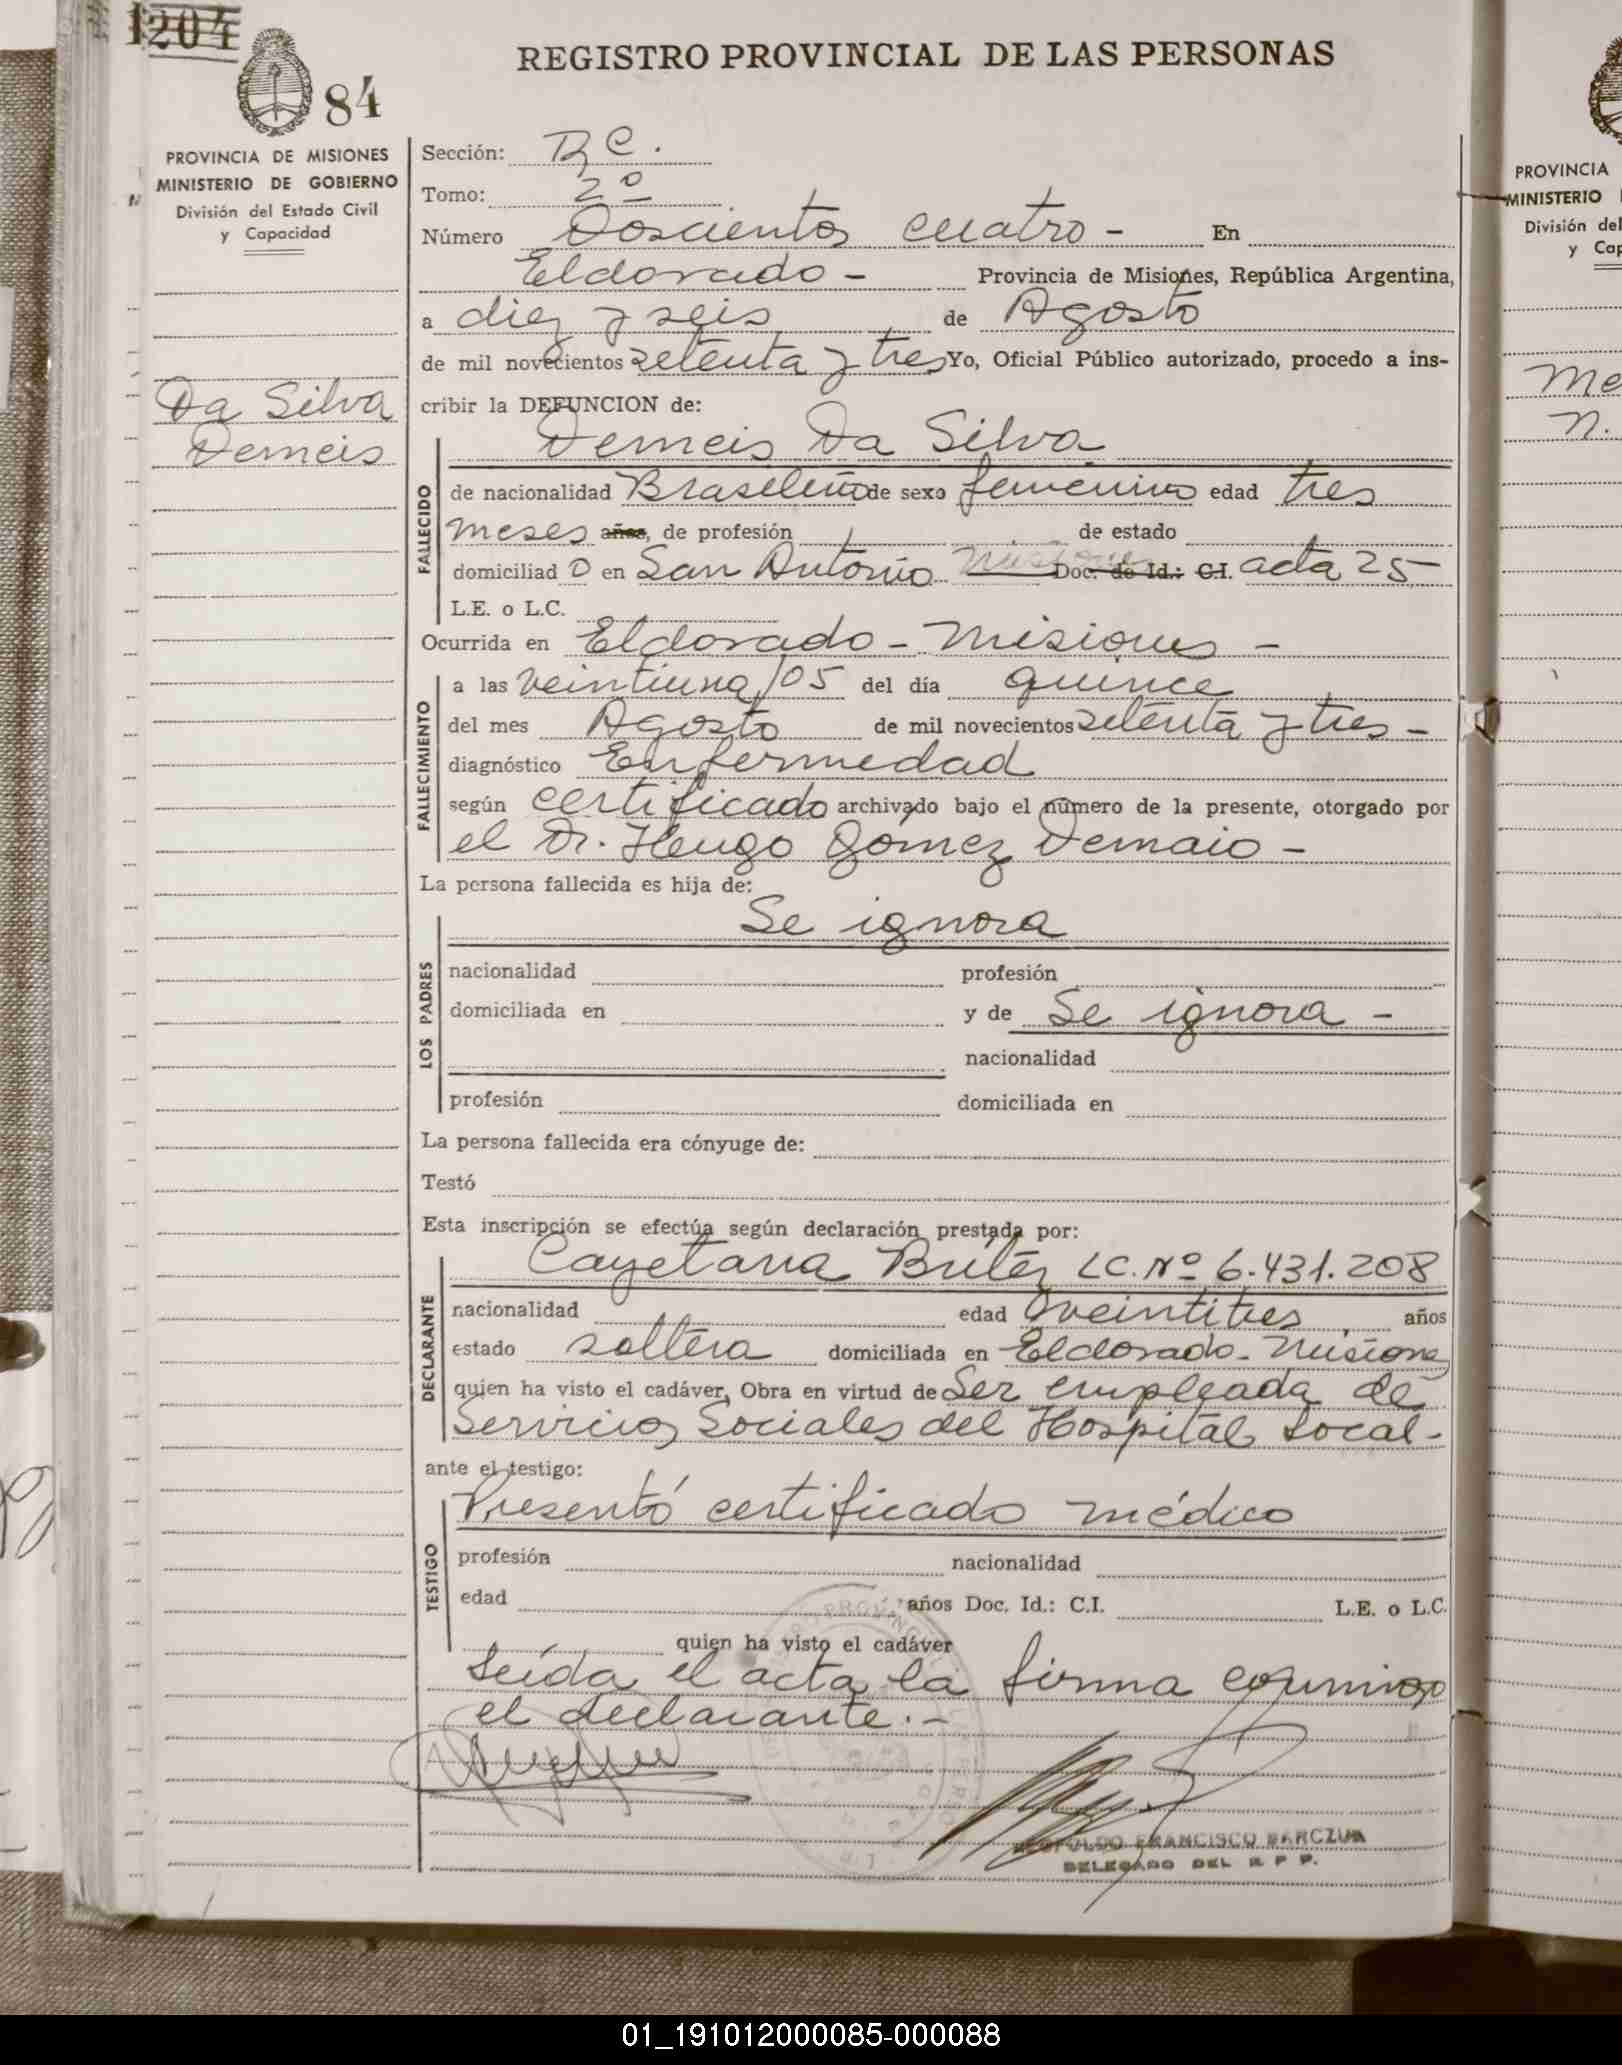 1204
84
REGISTRO PROVINCIAL DE LAS PERSONAS
PROVINCIA DE MISIONES
MINISTERIO DE GOBIERNO
División del Estado Civil
y Capacidad
Da Silva
Demeis
Sección: R C.
Tomo: 2º
Número Doscientos cuatro - En
Eldorado - Provincia de Misiones, República Argentina,
a diez y seis de Agosto
de mil novecientos setenta y tres Yo, Oficial Público autorizado, procedo a ins-
cribir la DEFUNCION de:
Demeis Da Silva
FALLECIDO
de nacionalidad Brasileña de sexo femenino edad tres
meses años, de profesión de estado
domiciliad o en San Antonio Misiones Doc. de Id.: C.I. acta 25
L.E. o L.C.
Ocurrida en Eldorado - Misiones -
FALLECIMIENTO
a las veintiuna/05 del día quince
del mes Agosto de mil novecientos setenta y tres -
diagnóstico Enfermedad
según certificado archivado bajo el número de la presente, otorgado por
el Dr. Hugo Gómez Demaio -
La persona fallecida es hija de:
LOS PADRES
Se ignora
nacionalidad profesión
domiciliada en y de Se ignora -
nacionalidad
profesión domiciliada en
La persona fallecida era cónyuge de:
Testó
Esta inscripción se efectúa según declaración prestada por:
DECLARANTE
Cayetana Britez LC. Nº 6.431.208
nacionalidad edad veintitres años
estado soltera domiciliada en Eldorado - Misiones
quien ha visto el cadáver, Obra en virtud de Ser empleada de
Servicios Sociales del Hospital Local -
ante el testigo:
TESTIGO
Presentó certificado médico
profesión nacionalidad
edad años Doc. Id.: C.I. L.E. o L.C.
quien ha visto el cadáver
Leída el acta la firma conmigo
el declarante. -
FRANCISCO BARCZUK
DELEGADO DEL R P P.
PROVINCIA
MINISTERIO
División del
y Cap
Me
N.
01_191012000085-000088